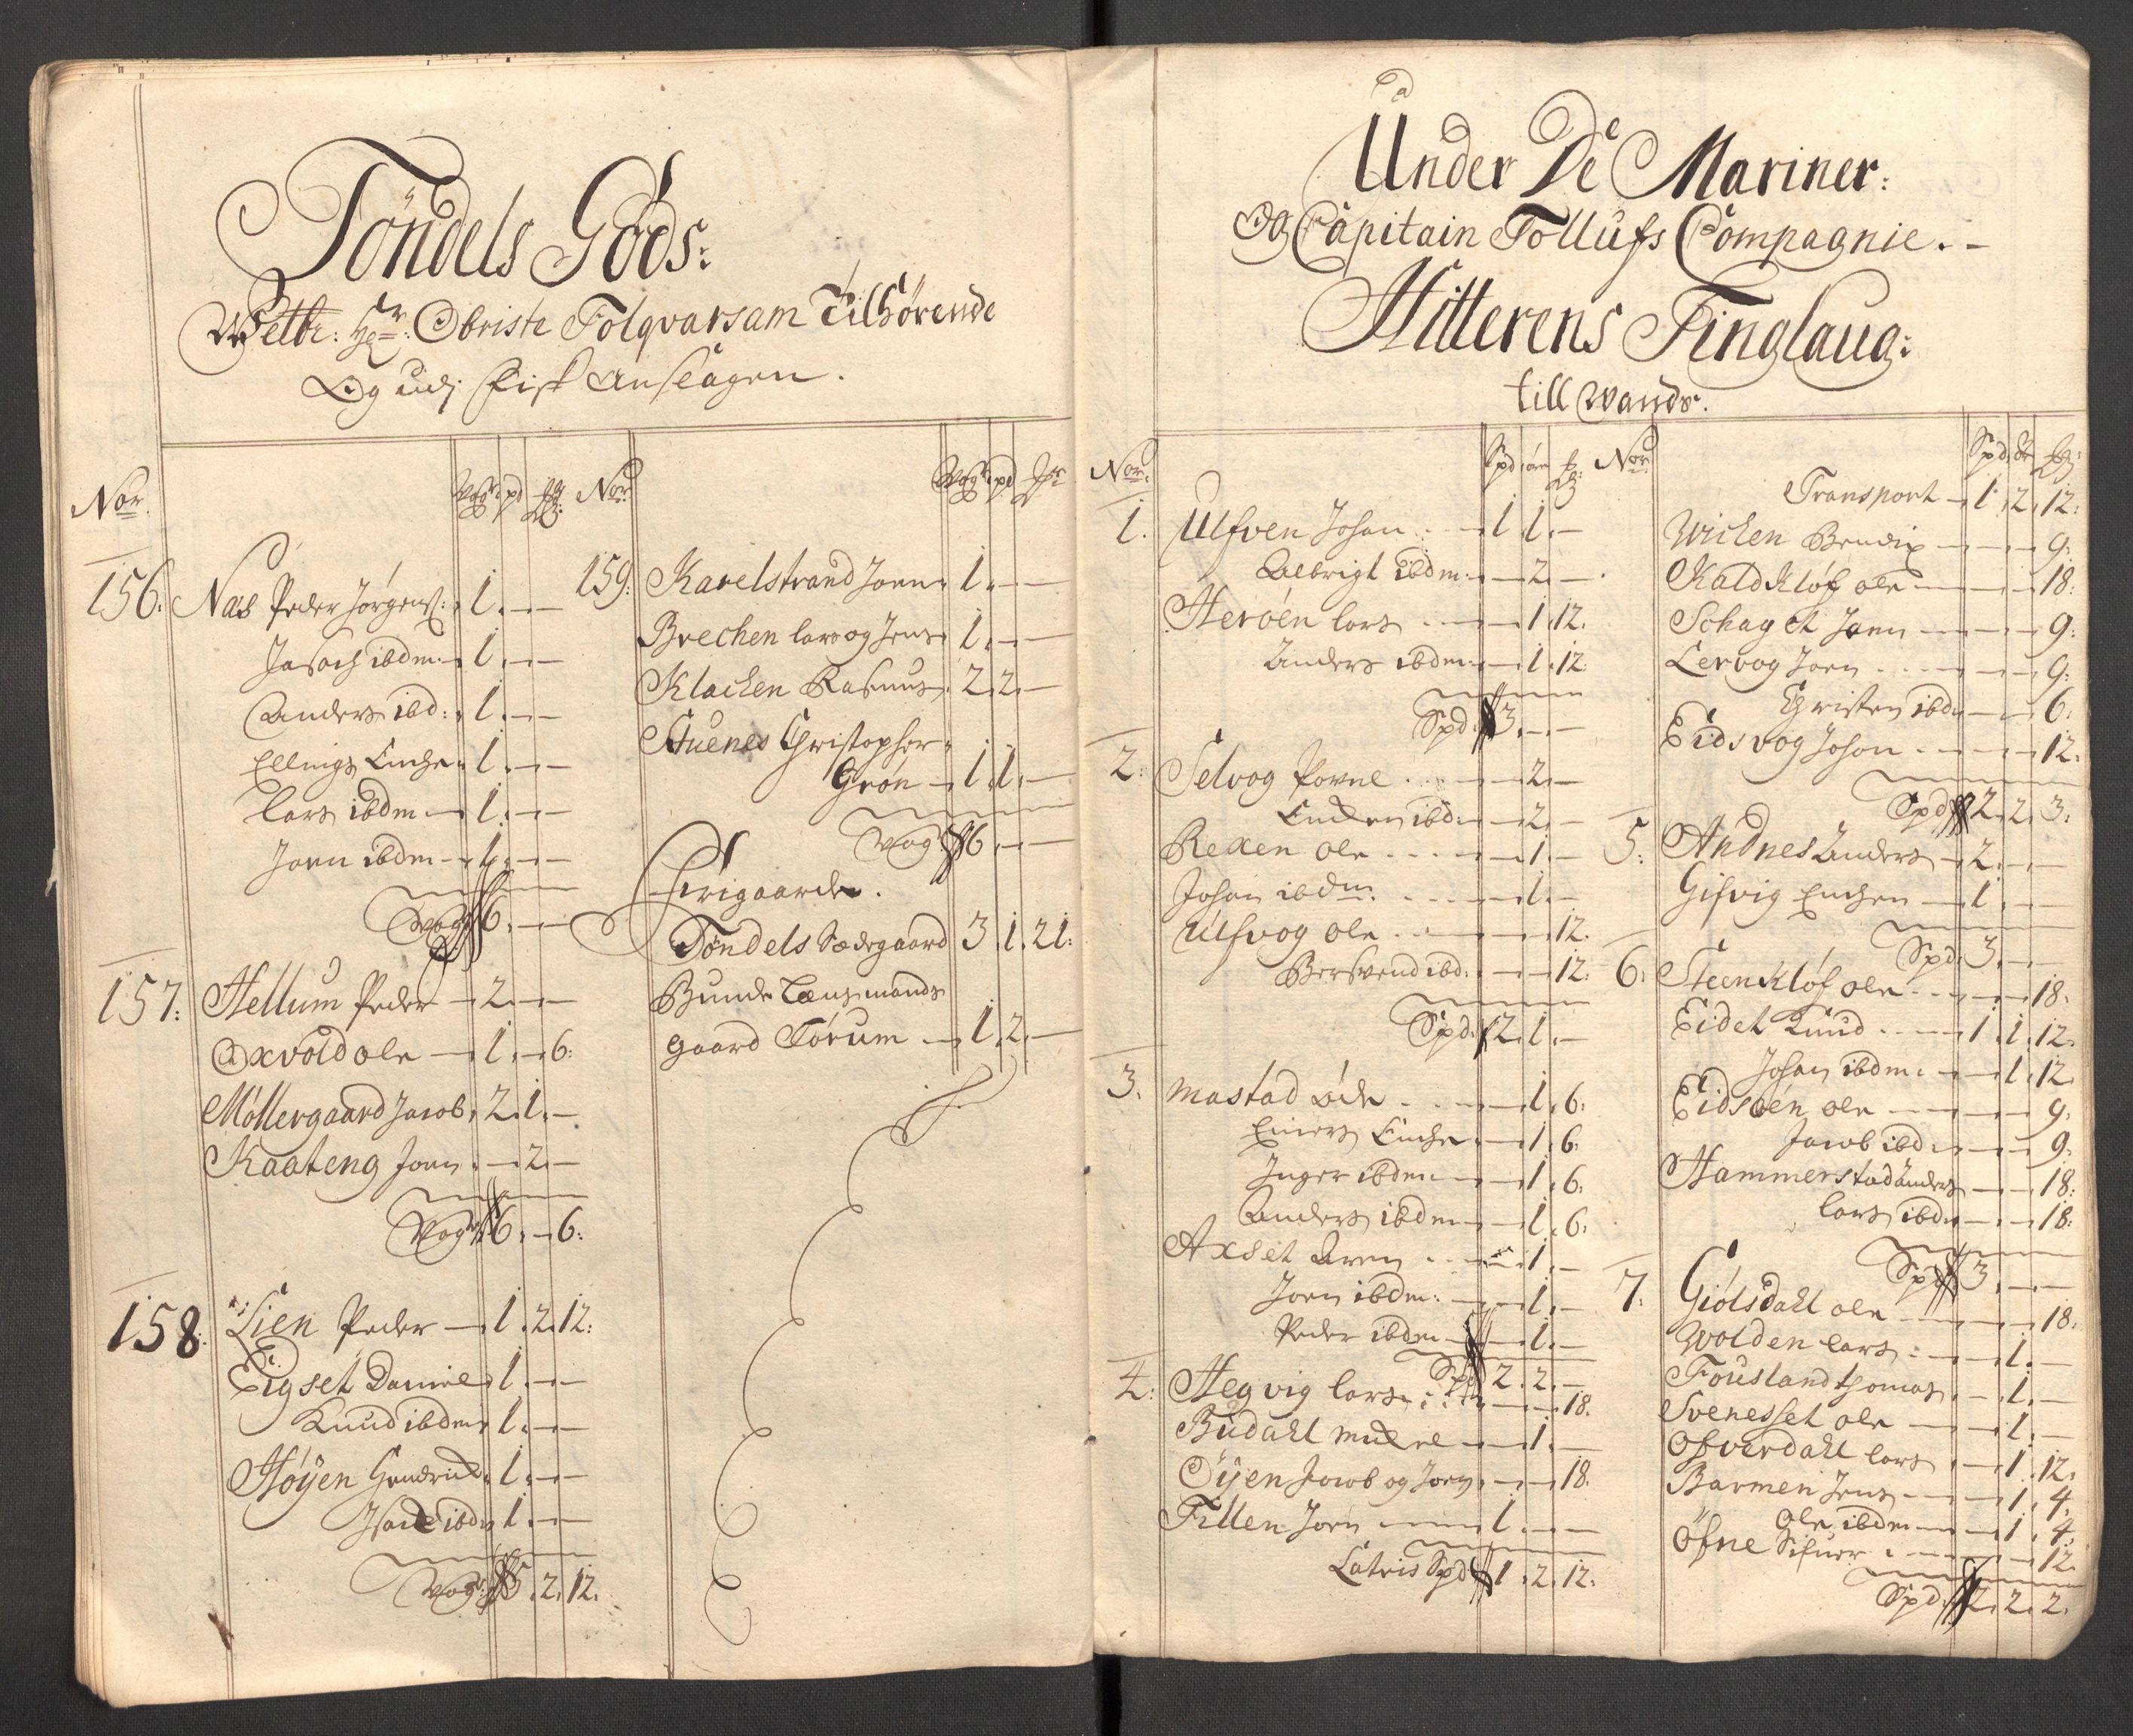 Töndels Gods:
Welbr: Hr: Obriste Tolqvarsam Tilhørende
Og udj fisk Anslagen.
Nor. Wogr pd Nor Wog pd
156. Nas Peder Jørgens: 1. — —
ibdm 1. — —
Anders ibd: 1. — —
Ellings Enche 1. — —
Lars ibdm 1. — —
Joen ibdm 1. — —
Wog 6. — —
157. Hellum Peder 2. — —
Oxvold ole 1. — 6:
Möllergaard Jacob 2. 1. —
Kaateng Joen — 2. —
Wogr 6. — 6:
158. Lien Peder 1. 2. 12:
Eigset Daniel 1. — —
Knud ibdm 1. — —
Höÿen Hendrich 1. — —
Isach ibdm 1. — —
Wogr 5. 2. 12.
159. Karelstrand Joen 1. — —
Brechen Lars og Jens 1. — —
Klachen Rasmus 2. 2. —
Stuenes Christopher
Grön 1. 1. —
Wogr 6. — —
Friigaarde.
Töndels Sædegaard 3. 1. 21:
Bunde Lensmands
gaard Forum 1. 2. —
Under De Mariner:
Og Capitain Tollufs Compagnie. —
Hitterens Tinglaug:
till Wands.
Nor. Spd ør Nor Spd
1. Ulfven Johan 1 1. —
Albrigt ibdm — 2. —
Heröen Lars — 1. 12.
Anders ibdm — 1. 12.
Spd 3. — —
2. Selvog Povel — 2. —
Enchen ibd: — 2. —
Rexen ole — 1. —
Johan ibdm — 1. —
Ulfvog ole — — 12.
Bersvend ibd: — — 12:
Spd: 2. 1. —
3. Mastad — 1. 6:
Einers Enche — 1. 6:
Inger ibdm — 1. 6:
Anders ibdm — 1. 6:
Axset Aren — 1. —
Joen ibdm: — 1. —
Peder ibdm — 1. —
Spd 2. 2. —
4. Hegvig Lars — — 18.
Budahl — 1. —
Öÿen Jacob og Joen — — 18.
Fillen Joen 1. — —
Latris Spd 1. 2. 12.
Transport 1. 2. 12:
Wichen Bendix — — 9:
Kaldklöf ole — — 18:
Schaget Joen — — 9:
Lervog Joen — — 9:
Christen ibd — — 6:
Eidsvog Johan — — 12.
Spd 2. 2. 3:
5. Andnes Anders 2. — —
Gifvig Enchen 1. — —
Spd. 3. — —
6. Steenklöf ole — — 18.
Eidet Knud 1. 1. 12.
Johan ibdm: — 1. 12.
Eidsöen ole — — 9.
Jacob ibd — — 9:
Hammerstad Anders — — 18:
Lars ibd — — 18:
Spd 3. — —
7. Giölsdahl ole — — 18.
Wolden Lars — 1. —
Fousland Thomas — 1. —
Svenesset ole — 1. —
Ofverdahl Lars — 1. 12.
Barmen Jens — 1. 4.
Ole ibdm — 1. 4.
Öfne Sifuer — — 12.
Spd. 2. 2. 2.